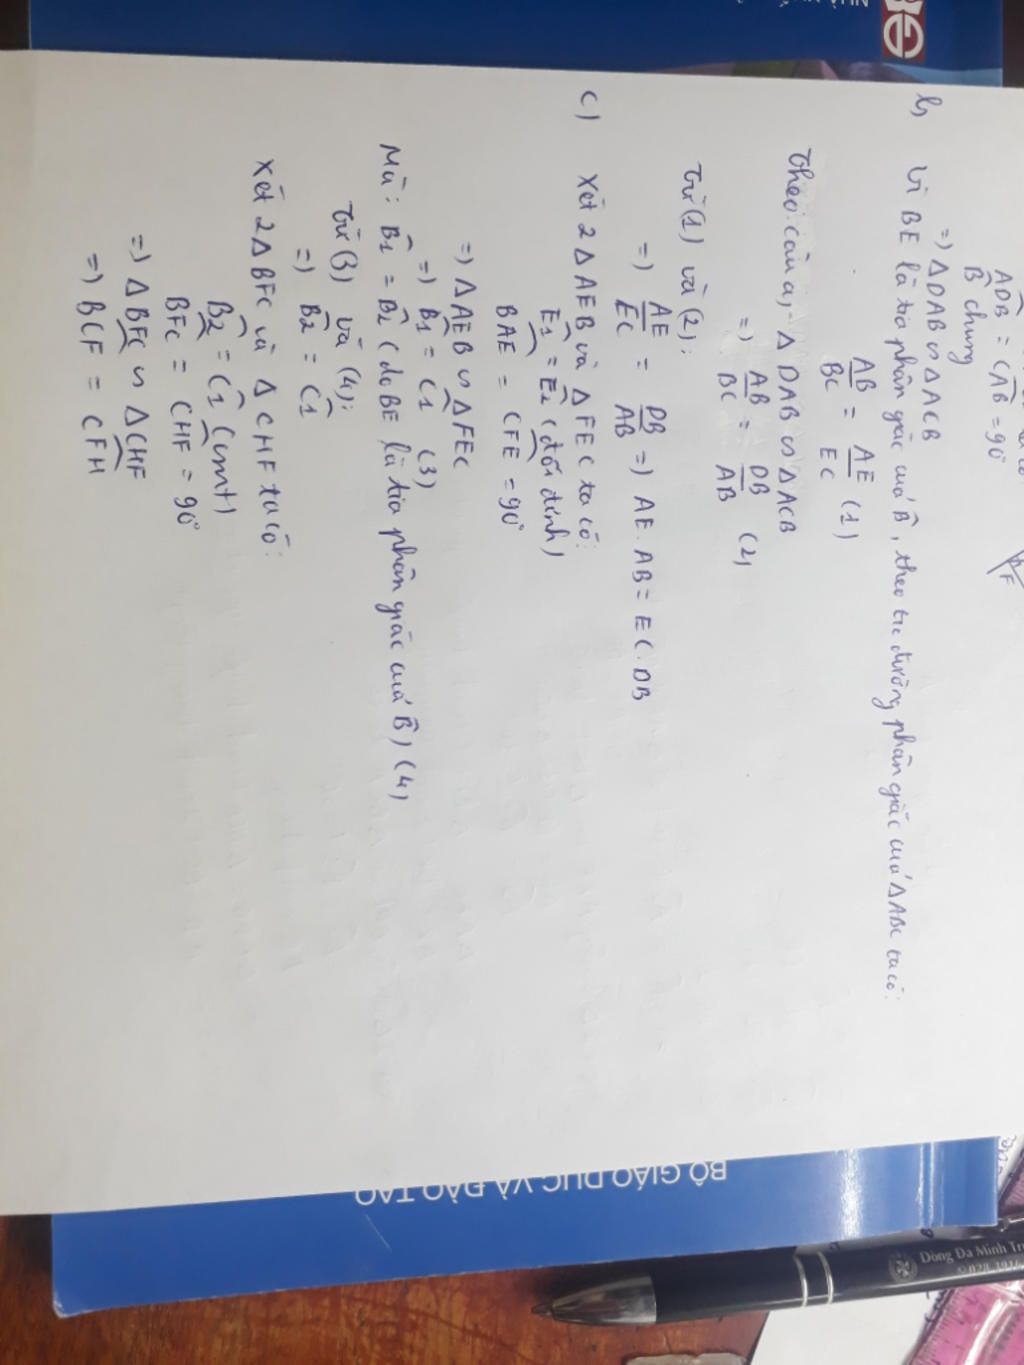 ADB = CAB = 90°
B chung
=> ΔDAB ∽ ΔACB
b, Vì BE là tia phân giác của B, theo t/c đường phân giác của ΔABC ta có:
AB/BC = AE/EC (1)
Theo câu a, ΔDAB ∽ ΔACB
=> AB/BC = DB/AB (2)
Từ (1) và (2):
=> AE/EC = DB/AB => AE.AB = EC.DB
c) Xét 2Δ AEB và ΔFEC ta có:
E1 = E2 (đối đỉnh)
BAE = CFE = 90°
=> ΔAEB ∽ ΔFEC
=> B1 = C1 (3)
Mà: B1 = B2 (do BE là tia phân giác của B) (4)
Từ (3) và (4):
=> B2 = C1
Xét 2Δ BFC và ΔCHF ta có:
B2 = C1 (cmt)
BFC = CHF = 90°
=> ΔBFC ∽ ΔCHF
=> BCF = CFH
F
BỘ GIÁO DỤC VÀ ĐÀO TẠO
Dòng Đa Minh